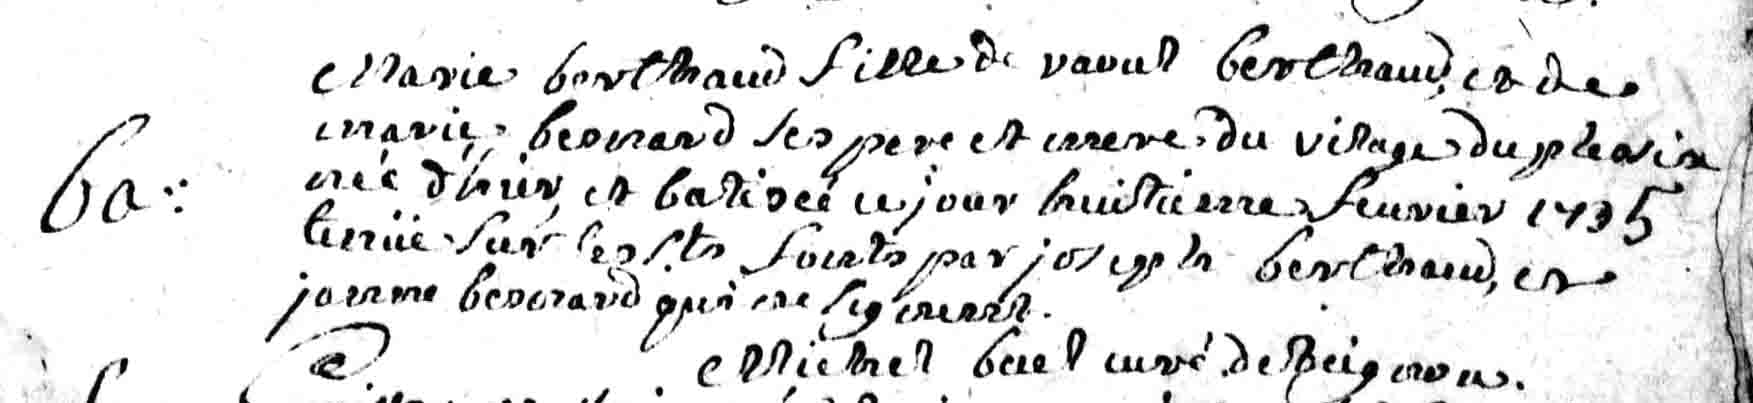 Marie berthaud fille de raoul berthaud, et de
ba: marie besnard ses pere et mere du vilage du plesix
née d'hier, et batisée ce jour huistieme feuvrier 1735
tenüe sur les sts fonts par joseph berthaud, et
jeanne besnard qui ne signent.
Michel buel curé de Beignon.